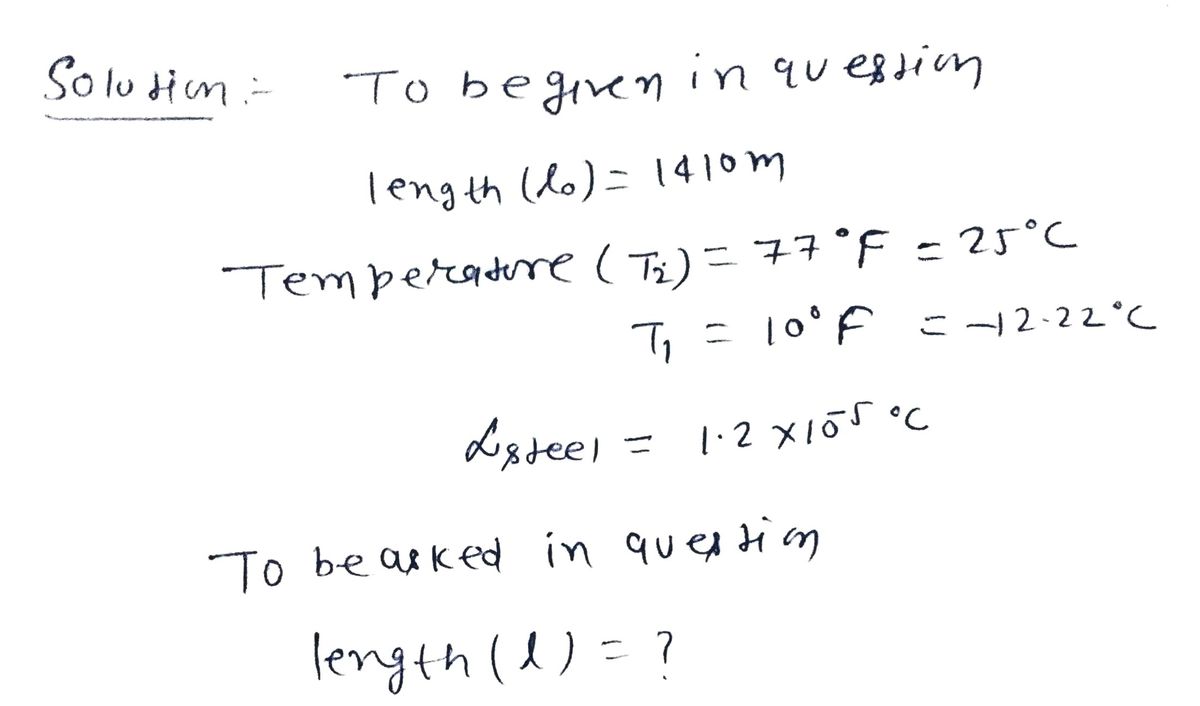 Solution :- To be given in question
length (l₀) = 1410 m
Temperature (T₂) = 77 °F = 25°C
T₁ = 10° F = -12.22°C
αsteel = 1.2 × 10⁻⁵ °C
To be asked in question
length (l) = ?